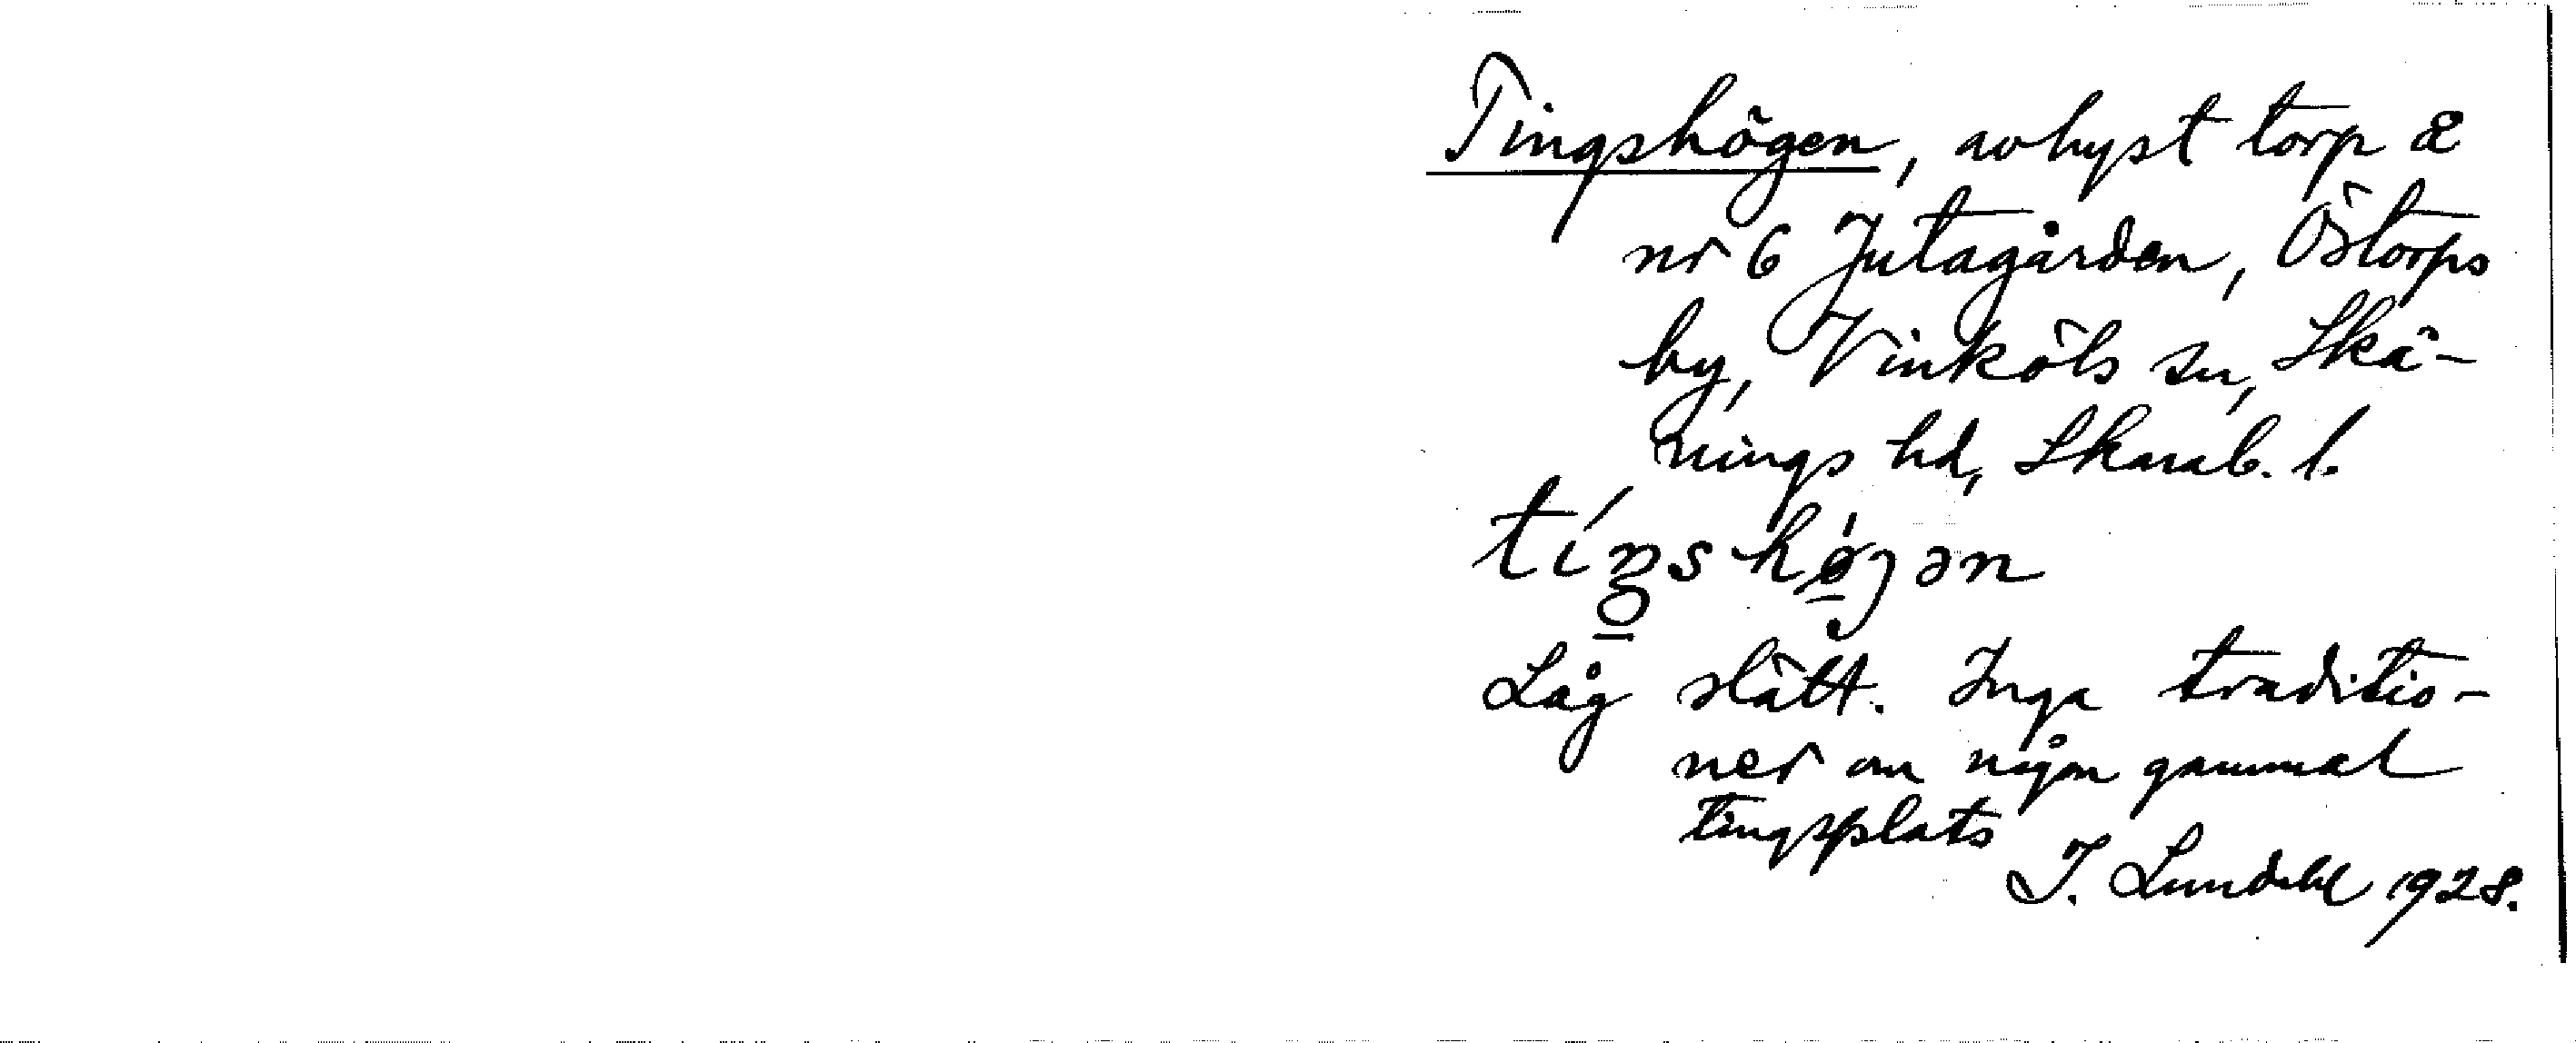 Tingshögen, avhyst torp å
nr 6 Jutagården, Östorps
by, Vinköls sn, Skå-
nings hd, Skarab. l.
Låg slätt. Inga traditio-
ner om någon gammal
tingsplats
I. Lundahl 1928.